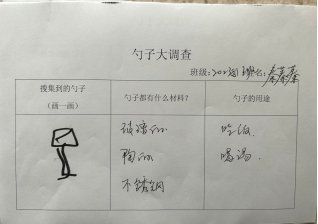 勺子大调查
班级：202班 姓名：秦蓁蓁
搜集到的勺子
（画一画）
勺子都有什么材料？
勺子的用途
陶的
不锈钢
吃饭
喝汤